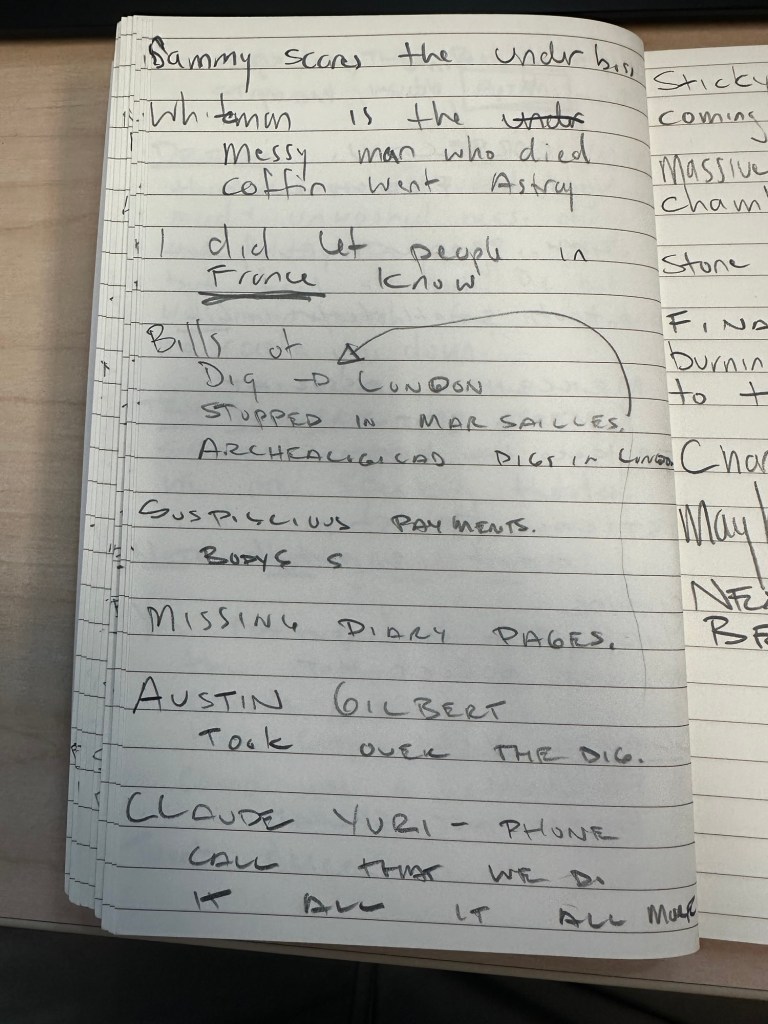 Sammy scares the undr boss
Whiteman is the undr
messy man who died
coffin went Astray
I did let people in
France know
Bills of
Dig → LONDON
STOPPED IN MARSAILLES.
ARCHEALIGICAL DIGS in London
SUSPISCIOUS PAYMENTS.
BODYS S
MISSING DIARY PAGES.
AUSTIN GILBERT
Took OVER THE DIG.
CLAUDE YURI - PHONE
CALL THAT WE DO
IT ALL IT ALL MORE
Sticky
coming
Massive
cham
Stone
FIND
burnin
to t
Cha
May
NEX
BE